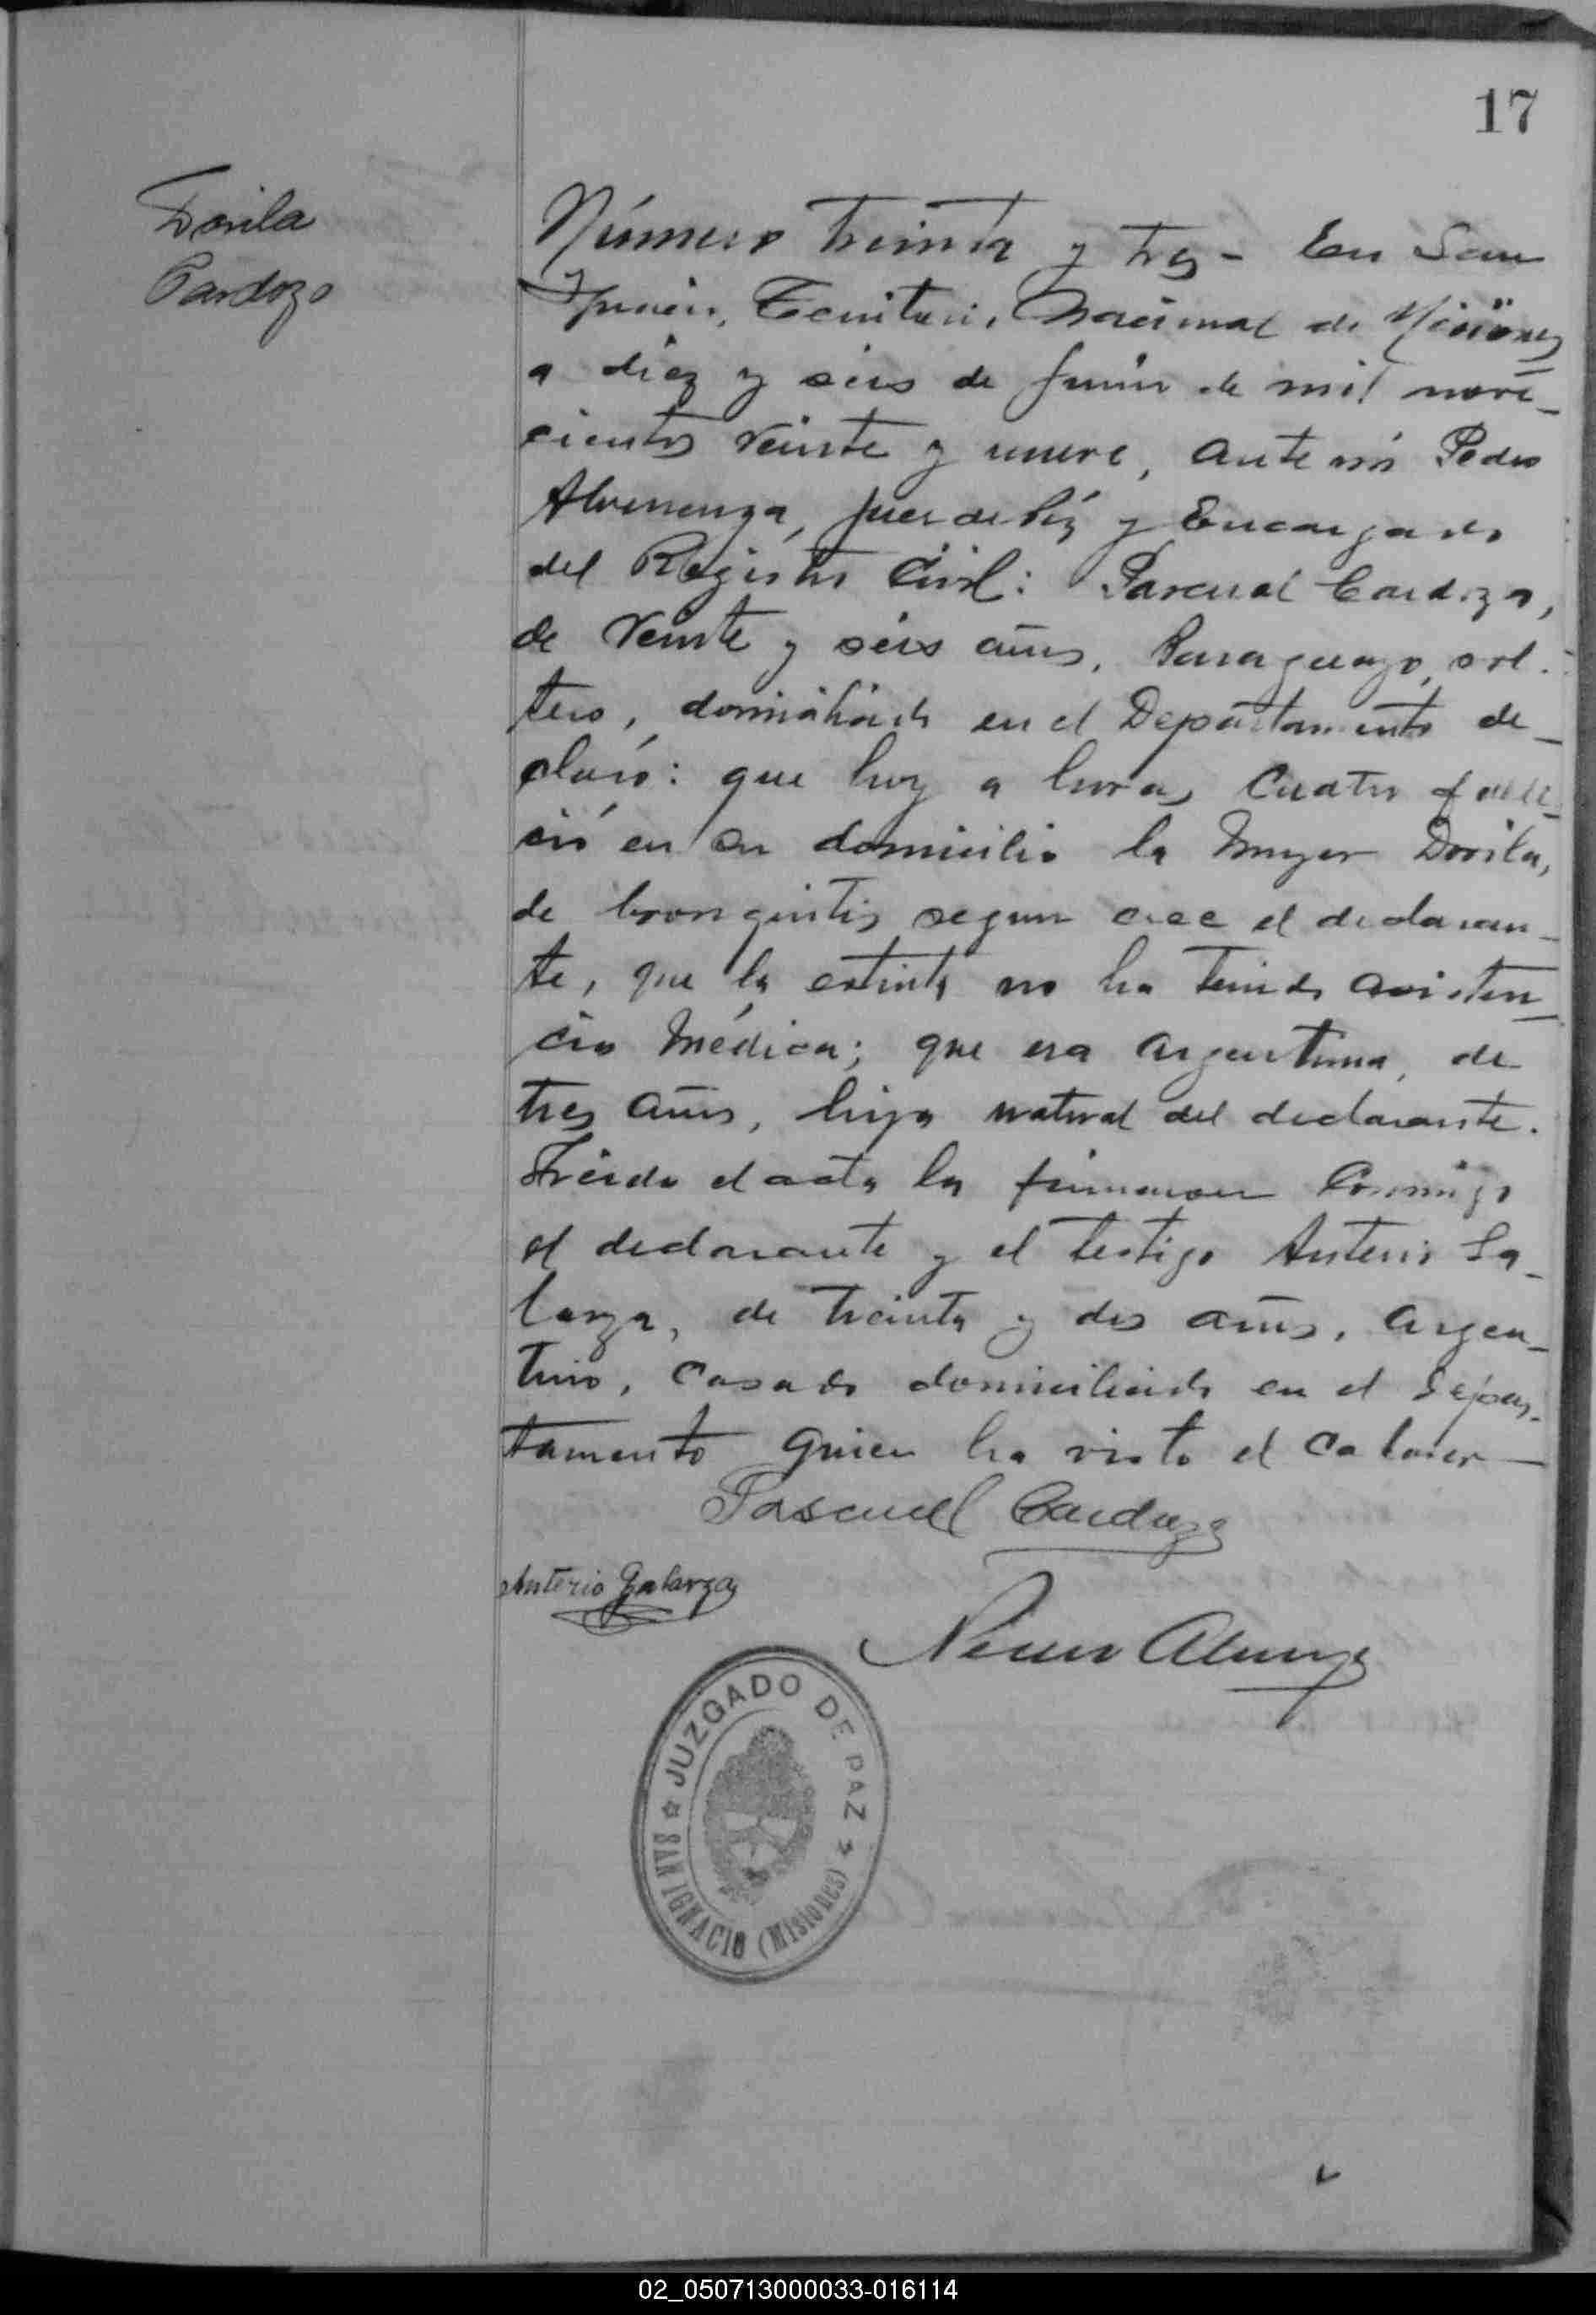 17
Dorila
Cardozo
Número treinta y tres - En San
Ignacio, Territorio Nacional de Misiones
a diez y seis de Junio de mil nove_
cientos veinte y nueve, ante mí Pedro
Juez de Páz y Encargado
del Registro Civil: Pascual Cardozo,
de veinte y seis años, Paraguayo, sol.
tero, domiciliado en el Departamento de_
claró: que hoy a horas cuatro falle_
ció en su domicilio la mujer Dorila,
de bronquitis segun cree el declaran_
te, que la extinta no ha tenido asisten_
cia médica; que era argentina, de
tres años, hija natural del declarante.
Leida el acta la firmaron conmigo
el declarante y el testigo Anterio Ga_
larza, de treinta y dos años, argen_
tino, casado domiciliado en el Depar_
tamento quien ha visto el cadaver—
Pascual Cardozo
Anterio Galarza
JUZGADO DE PAZ
SAN IGNACIO (Misiones)
02_050713000033-016114